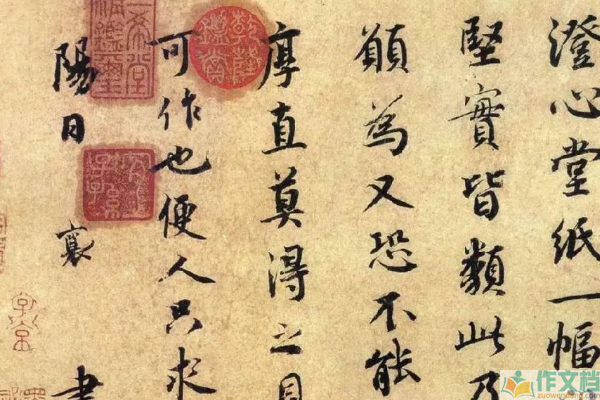 澄心堂紙一幅
堅實皆類此乃
願為又恐不能
厚直莫得之見
可作也便人只求
陽日 襄 書
乾隆御覽之寶
作文档
zuowendang.com